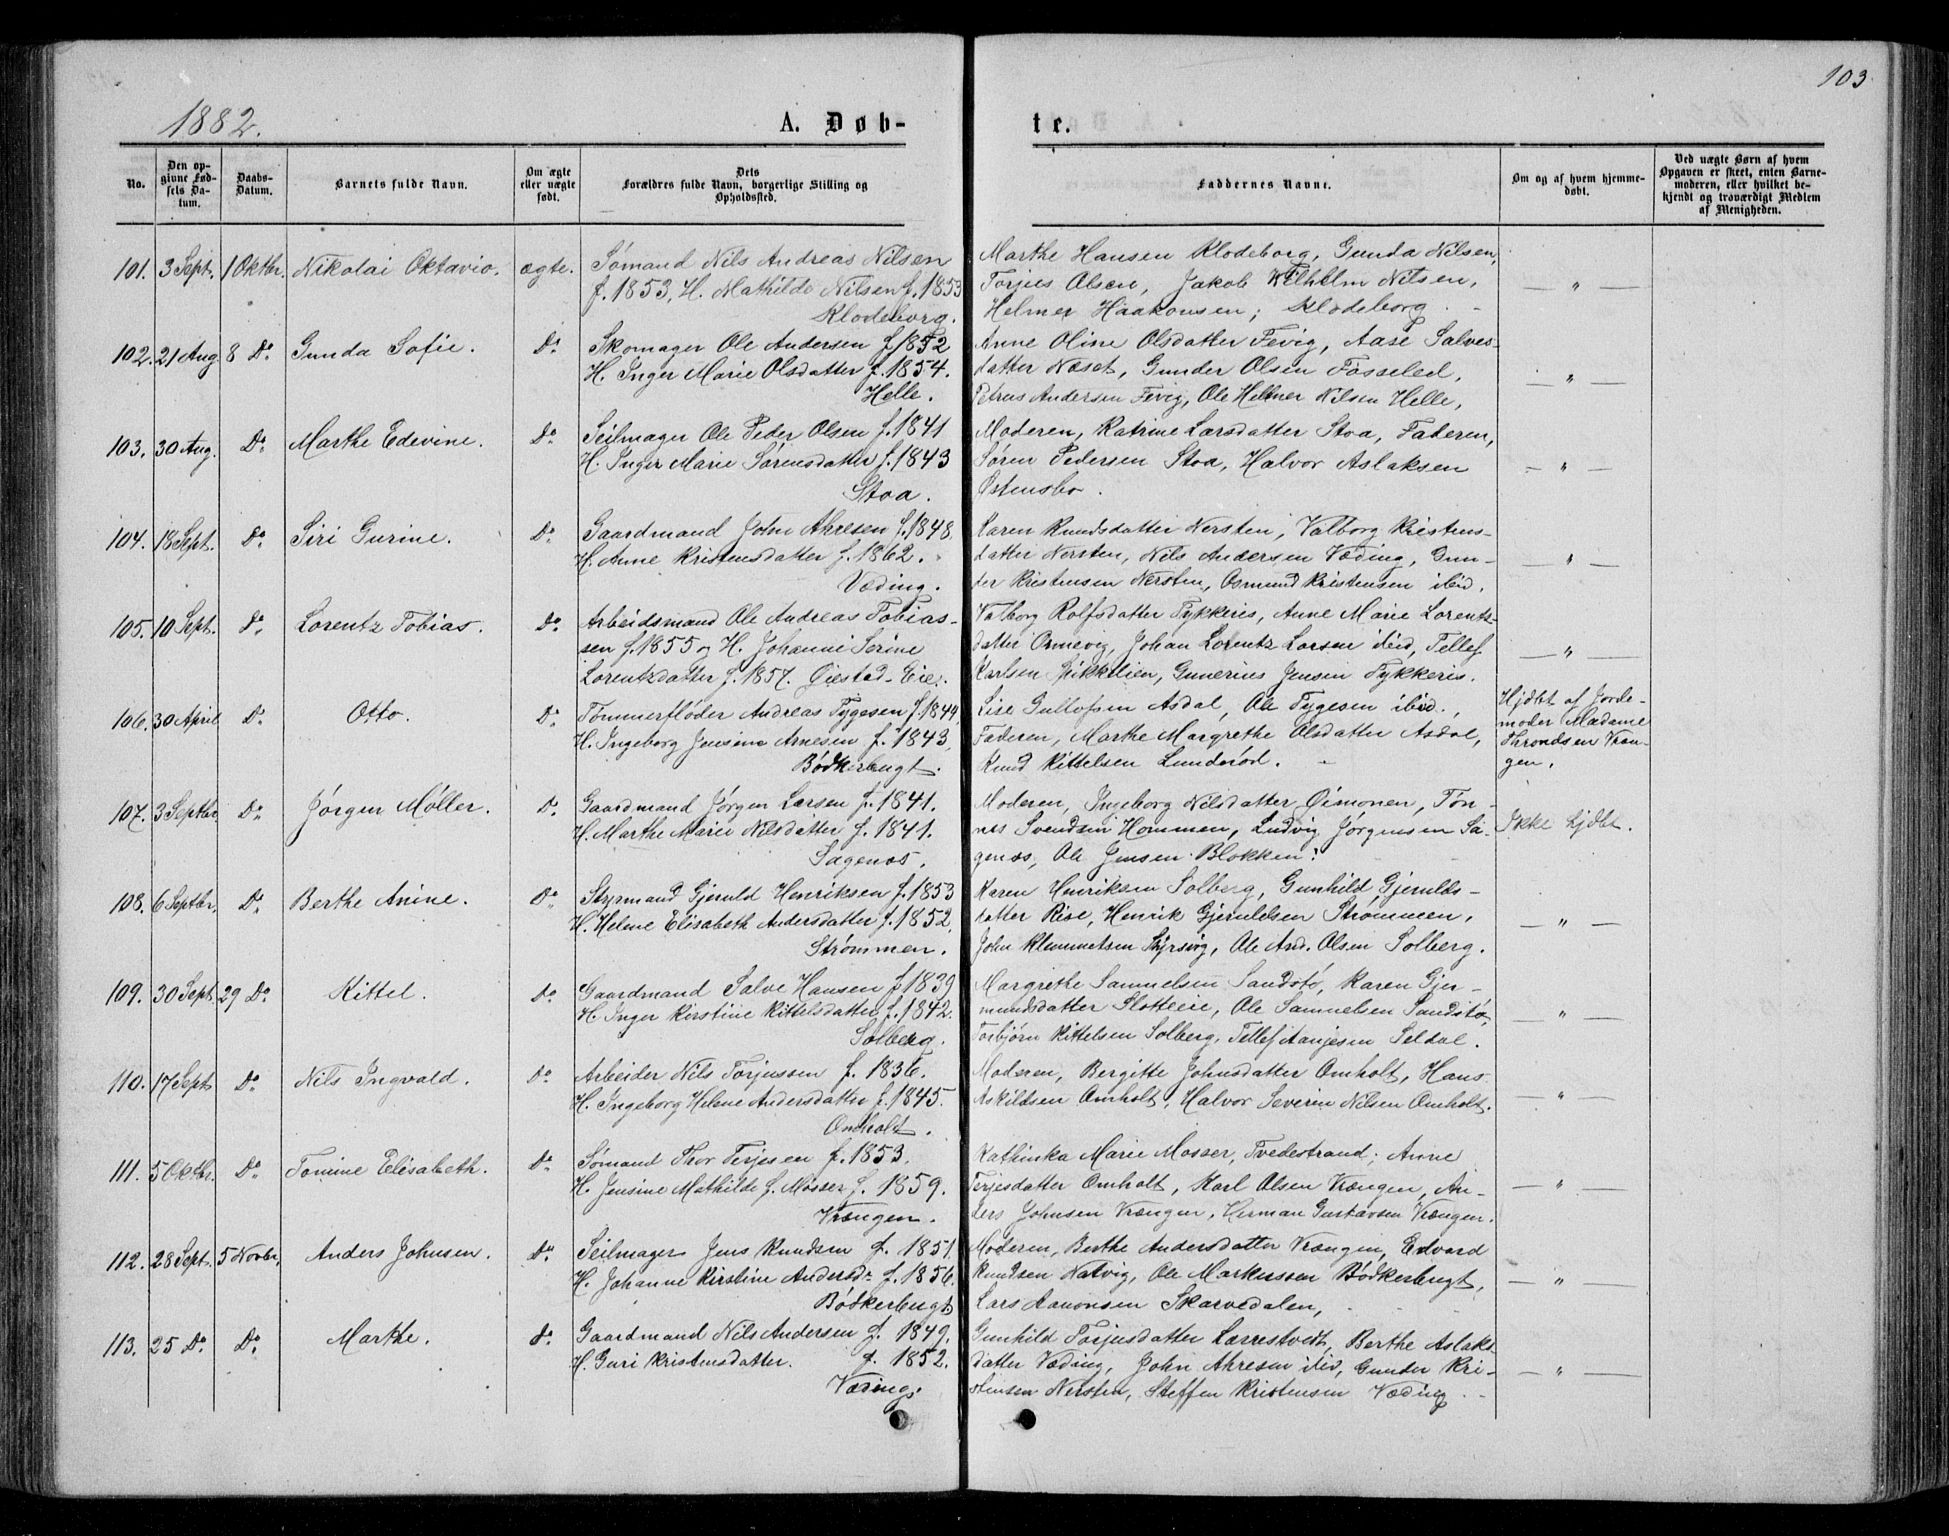 103
1882.
A. Døb-
te.
No.
Den op-
givne Fød-
sels Da-
tum.
Daabs-
Datum.
Barnets fulde Navn.
Om ægte
eller uægte
født.
Dets
Forældres fulde Navn, borgerlige Stilling og
Opholdssted.
Faddernes Navne.
Om og af hvem hjemme-
døbt.
Ved uægte Børn af hvem
Opgaven er skeet, enten Barne-
moderen, eller hvilket be-
kjendt og troværdigt Medlem
af Menigheden.
101. 3 Sept. 1 Oktbr. Nikolai Oktavio. ægte. Sømand Nils Andreas Nilsen
f. 1853, H. Mathilde Nilsen f. 1853
Klodeborg.
Marthe Hansen Klodeborg, Gunda Nilsen,
Torjus Olsen, Jakob Wilhelm Nilsen,
Helmer Haakonsen, Klodeborg.
— " —
102. 21 Aug 8 Do Gunda Sofie. Do Skomager Ole Andersen f 1852
H. Inger Marie Olsdatter f. 1854.
Helle.
Anne Oline Olsdatter Fevig, Aase Salves-
datter Næset, Gunder Olsen Fosseled,
Petrus Andersen Fevig, Ole Helmer Nilsen Helle,
— " —
103. 30 Aug. Do Marthe Edevine. Do Seilmager Ole Peder Olsen f. 1841
H. Inger Marie Sørensdatter f. 1843
Stoa.
Moderen, Katrine Larsdatter Stoa, Faderen,
Søren Pedersen Stoa, Halvor Aslaksen
Østensbo.
— " —
104. 18 Sept. Do Siri Gurine. Do Gaardmand John Ahresen f. 1848,
H. Anne Kristensdatter f. 1862.
Væding.
Karen Knudsdatter Nersten, Valborg Kristens-
datter Nersten, Nils Andersen Væding, Gun-
der Kristensen Nersten, Osmund Kristensen ibid.
"
105. 10 Sept. Do Lorentz Tobias. Do Arbeidsmand Ole Andreas Tobias-
sen f. 1855 og H. Johanne Serine
Lorentzdatter f. 1857. Øiestad-Eie.
Valborg Rolfsdatter Tykkeris, Anne Marie Lorentz-
datter Omnevig, Johan Lorentz Larsen ibid, Tellef
Karlsen Spikkelien, Gunerius Jensen Tykkeris.
— " —
106. 30 April Do Otto. Do Tømmerfløder Andreas Tygesen f. 1844
H. Ingeborg Jensine Arnesen f. 1843,
Bødkerbugt.
Lise Gullofsen Asdal, Ole Tygesen ibid.,
Faderen, Marthe Margrethe Olsdatter Asdal,
Knud Kittelsen Lunderød.
Hjdbt af Jorde-
moder Madame
Throndsen Vræn-
gen.
107. 3 Septbr. Do Jørgen Møller. Do Gaardmand Jørgen Larsen f. 1841.
H. Marthe Marie Nilsdatter f. 1841.
Sagenæs.
Moderen, Ingeborg Nilsdatter Øimonen, Tøn-
nes Svendsen Hommen, Ludvig Jørgensen Sa-
genæs, Ole Jensen Blokken.
Ikke hjdbt.
108. 6 Septbr. Do Berthe Anine. Do Styrmand Gjeruld Henriksen f. 1853
H. Helene Elisabeth Andersdatter f. 1852,
Strømmen.
Karen Henriksen Solberg, Gunhild Gjerulds-
datter Rise, Henrik Gjeruldsen Strømmen,
John Klemmetsen Skjrsvig, Ole And. Olsen Solberg.
— " —
109. 30 Sept. 29 Do Kittel. Do Gaardmand Salve Hansen f 1839
H. Inger Kirstine Kittelsdatter f. 1842.
Solberg.
Margrethe Samuelsen Sandstø, Karen Gjer-
mundsdatter Slotteeie, Ole Samuelsen Sandstø,
Torbjørn Kittelsen Solberg, Tellef Aanjesen Seldal.
— " —
110. 17 Sept Do Nils Ingvald. Do Arbeider Nils Torjussen f. 1836.
H. Ingeborg Helene Andersdatter f. 1845.
Omholt.
Moderen, Bergitte Johnsdatter Omholt, Hans
Askildsen Omholt, Halvor Severin Nilsen Omholt.
— " —
111. 5 Oktbr. Do Tomine Elisabeth. Do Sømand Thor Terjesen f. 1853.
H. Jensine Mathilde f. Mosser f. 1859.
Vrængen.
Kathinka Marie Mosser, Tvedestrand; Anne
Terjesdatter Omholt, Karl Olsen Vrængen, An-
ders Johnsen Vrængen, Herman Gustavsen Vrængen.
— " —
112. 28 Sept. 5 Novbr. Anders Johnsen. Do Seilmager Jens Knudsen f. 1851.
H. Johanne Kirstine Andersdr f. 1856.
Bødkerbugt
Moderen, Berthe Andersdatter Vrængen, Edvard
Knudsen Natvig, Ole Markussen Bødkerbugt,
Lars Aanonsen Skarvedalen,
— " —
113. 25 Do. Do. Marthe. do. Gaardmand Nils Andersen f. 1849.
H. Guri Kristensdatter. f. 1852.
Væding.
Gunhild Torjusdatter Lærrestvedt, Berthe Aslaks
datter Væding, John Ahresen ibid, Gunder Kri-
stensen Nersten, Steffen Kristensen Væding.
— " —